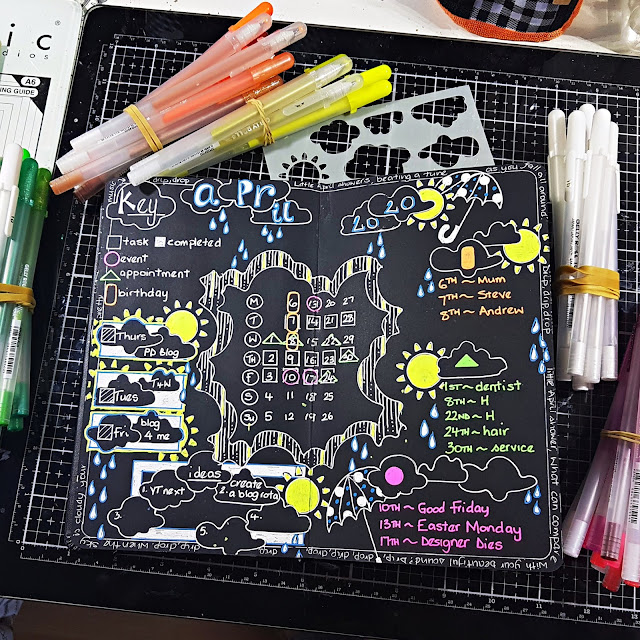 ic
A6
Little April showers, beating a tune as you fall all around
drip, drop
Key
April
2020
task completed
event
appointment
birthday
6TH ~ Mum
7TH ~ Steve
8TH ~ Andrew
Thurs
PD Blog
Tues
Fri
blog
4 me
M 6 13 20 27
T 7 14 21 28
W 1 8 15 22 29
TH 2 9 16 23 30
F 3 10 17 24
S 4 11 18 25
Su 5 12 19 26
1ST ~ dentist
8TH ~ H
22ND ~ H
24TH ~ hair
30TH ~ service
ideas
1. YT next
2. create
a blog rota
3.
4.
5.
10TH ~ Good Friday
13TH ~ Easter Monday
17TH ~ Designer Dies
drip drip drop little April shower what can compare
with your beautiful sound? Drip, drip, drop, drip, drop, When the sky
is cloudy your